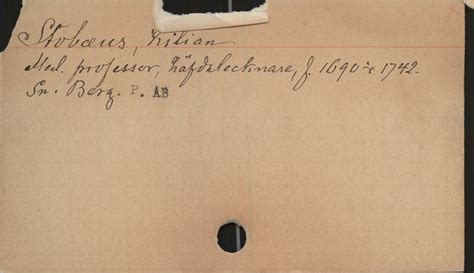 Stobæus, Kilian
Med. professor, häfdatecknare, f. 1690 † 1742.
Sn. Berg. P. AB